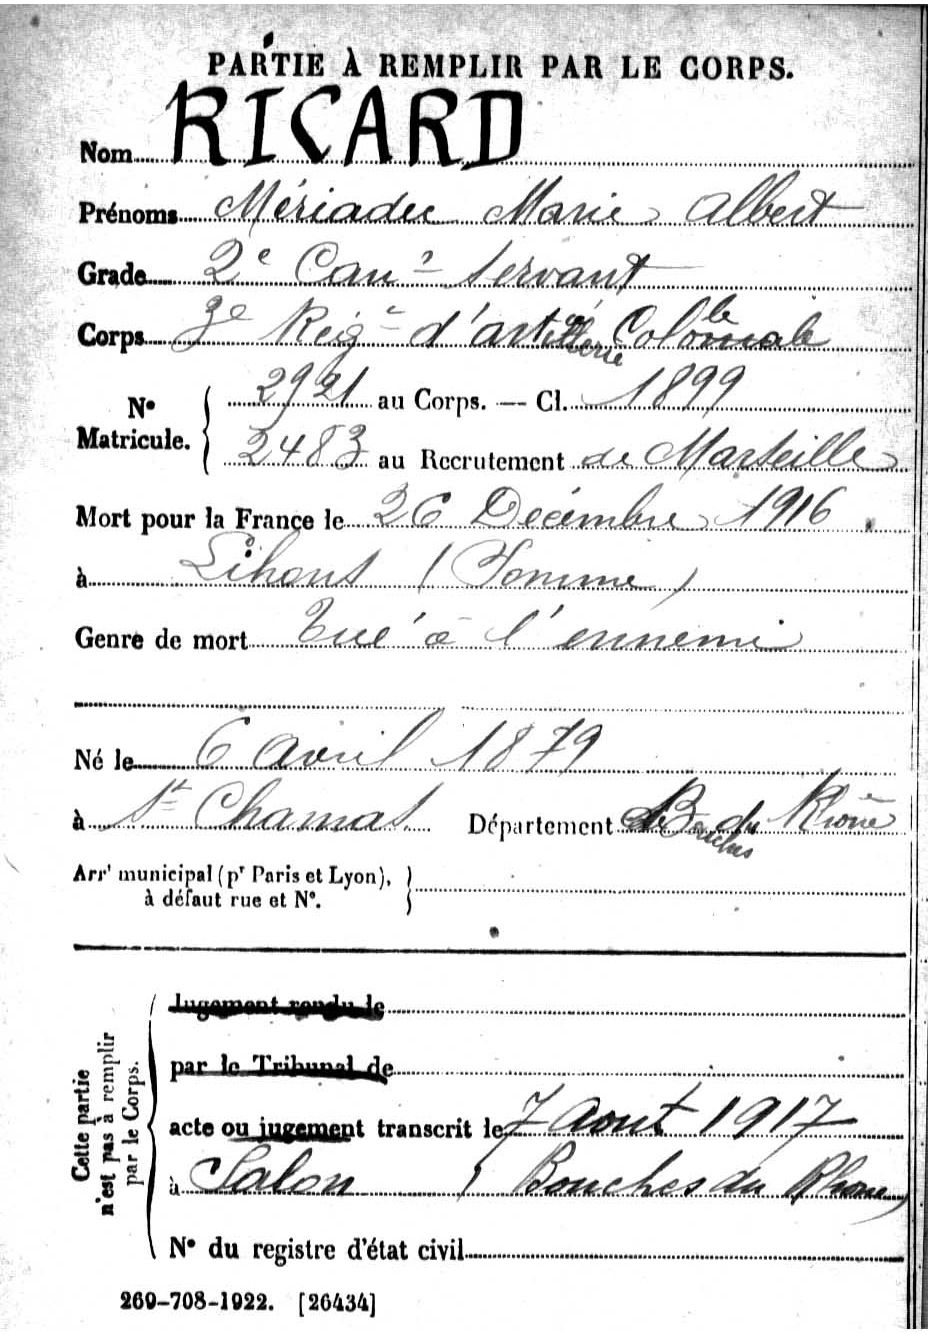 PARTIE À REMPLIR PAR LE CORPS.
Nom RICARD
Prénoms Mériadec Marie Albert
Grade 2e Canr servant
Corps 3e Régt d'artillerie Coloniale
No Matricule. 2921 au Corps. — Cl. 1899
2483 au Recrutement de Marseille
Mort pour la France le 26 Décembre 1916
à Lihons (Somme)
Genre de mort Tué à l'ennemi
Né le 6 Avril 1879
à St Chamas Département Bouches du Rhône
Arrt municipal (pr Paris et Lyon),
à défaut rue et No.
Cette partie n'est pas à remplir par le Corps.
Jugement rendu le
par le Tribunal de
acte ou jugement transcrit le 7 Aout 1917
à Salon (Bouches du Rhone)
No du registre d'état civil
269-708-1922. [26434]